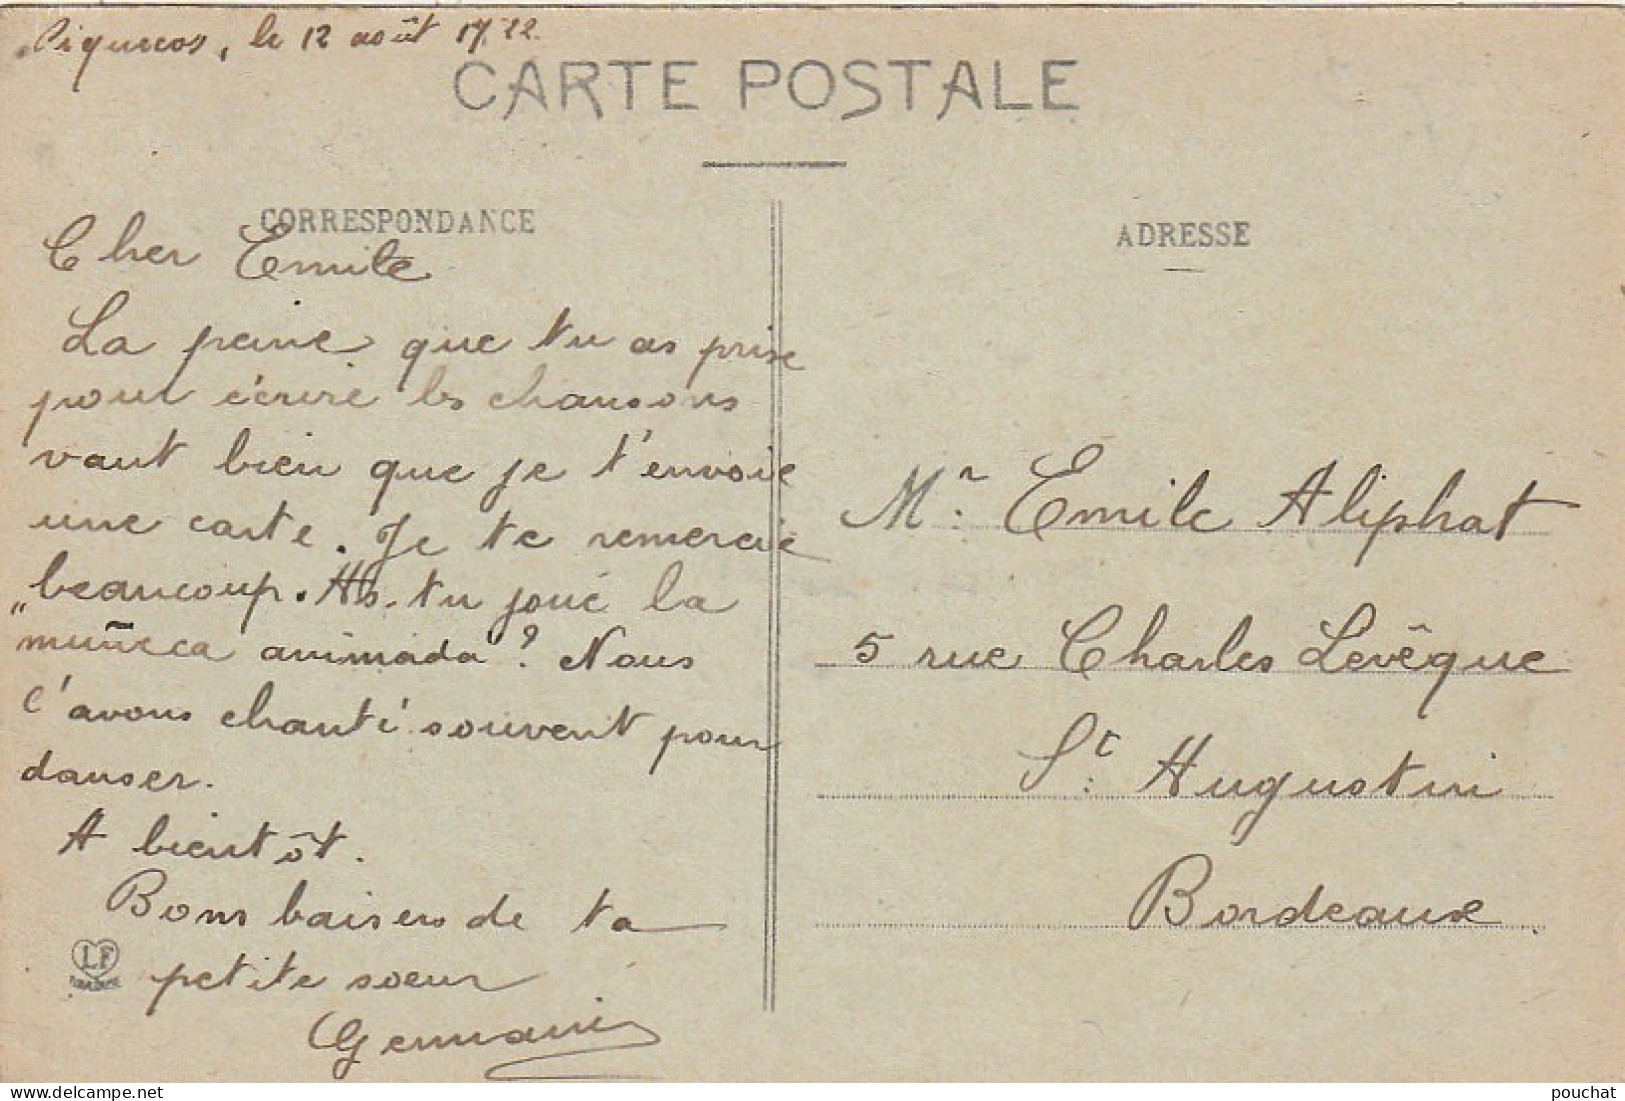 Piquecos, le 12 août 1922.
CARTE POSTALE
CORRESPONDANCE
Cher Emile
La peine que tu as prise
pour écrire les chansons
vaut bien que je t'envoie
une carte. Je te remercie
beaucoup. As-tu joué la
"muñeca animada? Nous
l'avons chanté souvent pour
danser.
A bientôt.
Bons baisers de ta
petite soeur
Germaine
LF
ADRESSE
Mr. Emile Aliphat
5 rue Charles Levêque
St. Augustin
Bordeaux
pouchat